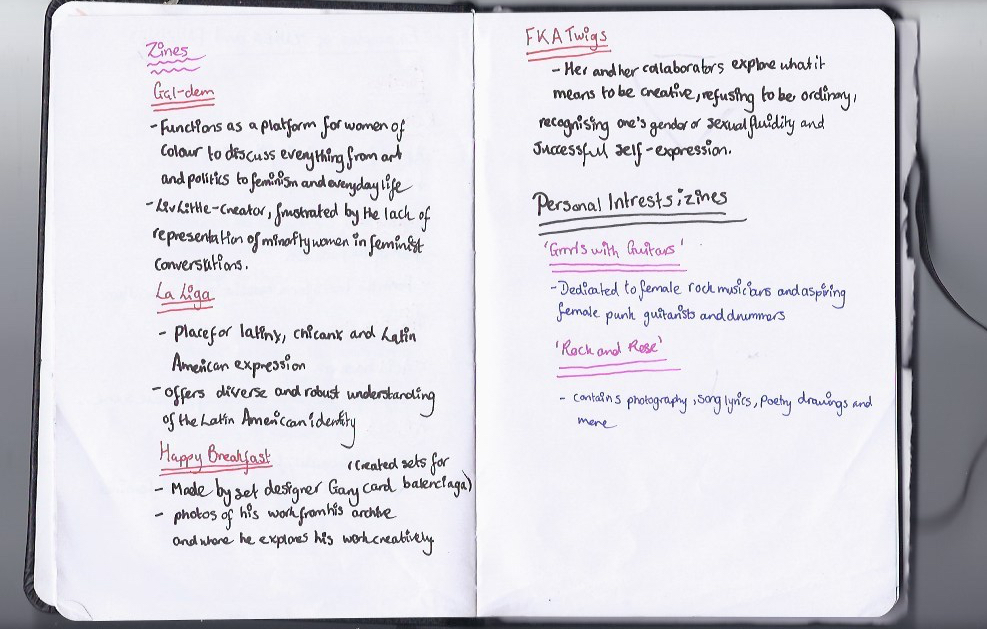 Zines
Gal-dem
- Functions as a platform for women of
colour to discuss everything from art
and politics to feminism and everyday life
- Liv Little - creator, frustrated by the lack of
representation of minority women in feminist
conversations.
La Liga
- Place for latinx, chicanx and Latin
American expression
- offers diverse and robust understanding
of the Latin American identity
Happy Breakfast
(created sets for
- Made by set designer Gary card balenciaga)
- photos of his work from his archive
and where he explores his work creatively
FKA Twigs
- Her and her collaborators explore what it
means to be creative, refusing to be ordinary,
recognising one's gender or sexual fluidity and
successful self-expression.
Personal Intrests: zines
'Grrrls with Guitars'
- Dedicated to female rock musicians and aspiring
female punk guitarists and drummers
'Rock and Rose'
- contains photography, song lyrics, poetry drawings and
more